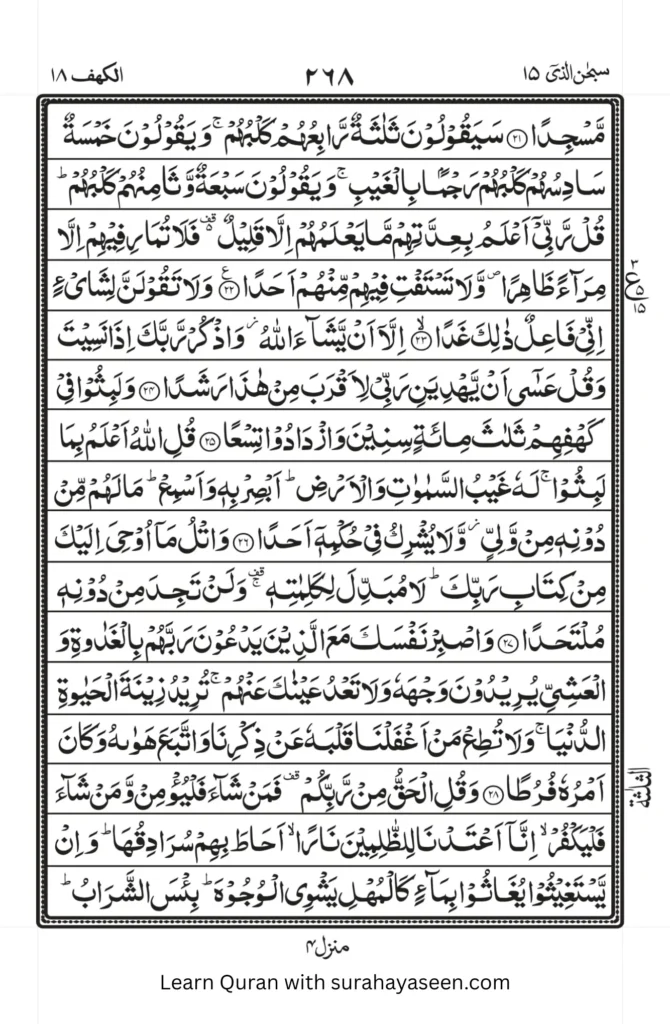 سبحٰن الذیٓ ١٥
٢٦٨
الكهف ١٨
مَّسْجِدًا ﴿٢١﴾ سَيَقُوْلُوْنَ ثَلٰثَةٌ رَّابِعُهُمْ كَلْبُهُمْ ۚ وَيَقُوْلُوْنَ خَمْسَةٌ
سَادِسُهُمْ كَلْبُهُمْ رَجْمًۢا بِالْغَيْبِ ۚ وَيَقُوْلُوْنَ سَبْعَةٌ وَّثَامِنُهُمْ كَلْبُهُمْ ؕ
قُلْ رَّبِّیْۤ اَعْلَمُ بِعِدَّتِهِمْ مَّا يَعْلَمُهُمْ اِلَّا قَلِيْلٌ ۬۫ فَلَا تُمَارِ فِيْهِمْ اِلَّا
مِرَآءً ظَاهِرًا ۪ وَّلَا تَسْتَفْتِ فِيْهِمْ مِّنْهُمْ اَحَدًا ﴿٢٢﴾ وَلَا تَقُوْلَنَّ لِشَایْءٍ
اِنِّیْ فَاعِلٌ ذٰلِكَ غَدًا ﴿٢٣﴾ۙ اِلَّاۤ اَنْ يَّشَآءَ اللّٰهُ ؗ وَاذْكُرْ رَّبَّكَ اِذَا نَسِيْتَ
وَقُلْ عَسٰۤی اَنْ يَّهْدِيَنِ رَبِّیْ لِاَقْرَبَ مِنْ هٰذَا رَشَدًا ﴿٢٤﴾ وَلَبِثُوْا فِیْ
كَهْفِهِمْ ثَلٰثَ مِائَةٍ سِنِيْنَ وَازْدَادُوْا تِسْعًا ﴿٢٥﴾ قُلِ اللّٰهُ اَعْلَمُ بِمَا
لَبِثُوْا ۚ لَهٗ غَيْبُ السَّمٰوٰتِ وَالْاَرْضِ ؕ اَبْصِرْ بِهٖ وَاَسْمِعْ ؕ مَا لَهُمْ مِّنْ
دُوْنِهٖ مِنْ وَّلِیٍّ ؗ وَّلَا يُشْرِكُ فِیْ حُكْمِهٖۤ اَحَدًا ﴿٢٦﴾ وَاتْلُ مَاۤ اُوْحِیَ اِلَيْكَ
مِنْ كِتَابِ رَبِّكَ ؕ لَا مُبَدِّلَ لِكَلِمٰتِهٖ ۚ۫ وَلَنْ تَجِدَ مِنْ دُوْنِهٖ
مُلْتَحَدًا ﴿٢٧﴾ وَاصْبِرْ نَفْسَكَ مَعَ الَّذِيْنَ يَدْعُوْنَ رَبَّهُمْ بِالْغَدٰوةِ وَ
الْعَشِیِّ يُرِيْدُوْنَ وَجْهَهٗ وَلَا تَعْدُ عَيْنٰكَ عَنْهُمْ ۚ تُرِيْدُ زِيْنَةَ الْحَيٰوةِ
الدُّنْيَا ۚ وَلَا تُطِعْ مَنْ اَغْفَلْنَا قَلْبَهٗ عَنْ ذِكْرِنَا وَاتَّبَعَ هَوٰىهُ وَكَانَ
اَمْرُهٗ فُرُطًا ﴿٢٨﴾ وَقُلِ الْحَقُّ مِنْ رَّبِّكُمْ ۫ فَمَنْ شَآءَ فَلْيُؤْمِنْ وَّمَنْ شَآءَ
فَلْيَكْفُرْ ۙ اِنَّاۤ اَعْتَدْنَا لِلظّٰلِمِيْنَ نَارًا ۙ اَحَاطَ بِهِمْ سُرَادِقُهَا ؕ وَاِنْ
يَّسْتَغِيْثُوْا يُغَاثُوْا بِمَآءٍ كَالْمُهْلِ يَشْوِی الْوُجُوْهَ ؕ بِئْسَ الشَّرَابُ ؕ
٢
ع
٥
١٥
الثلٰثة
منزل ٤
Learn Quran with surahayaseen.com